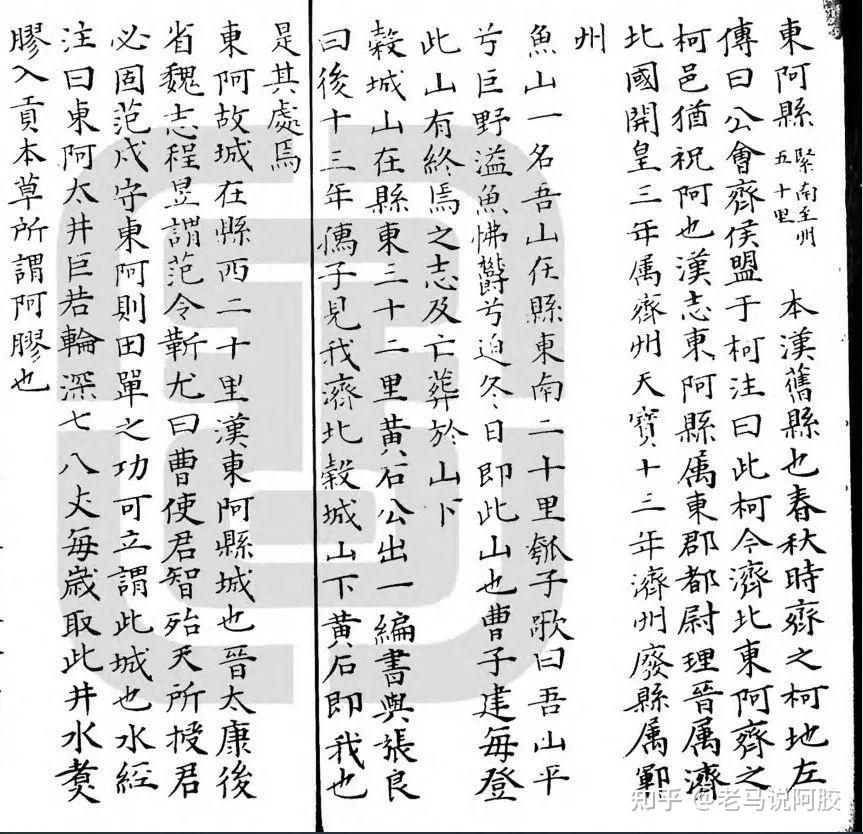 東阿縣 緊南至州五十里 本漢舊縣也春秋時齊之柯地左
傳曰公會齊侯盟于柯注曰此柯今濟北東阿齊之
柯邑猶祝阿也漢志東阿縣属東郡都尉理晉属濟
北國開皇三年属齊州天寶十三年濟州廢縣属鄆
州
魚山一名吾山在縣東南二十里瓠子歌曰吾山平
兮巨野溢魚怫鬱兮迫冬日即此山也曹子建每登
此山有終焉之志及亡葬於山下
穀城山在縣東三十二里黄石公出一編書與張良
曰後十三年儁子見我濟北穀城山下黄石即我也
是其處焉
東阿故城在縣西二十里漢東阿縣城也晉太康後
省魏志程昱謂范令靳尤曰曹使君智殆天所授君
必固范戍守東阿則田單之功可立謂此城也水經
注曰東阿大井巨若輪深七八丈每歲取此井水煑
膠入貢本草所謂阿膠也
知乎 @老马说阿胶